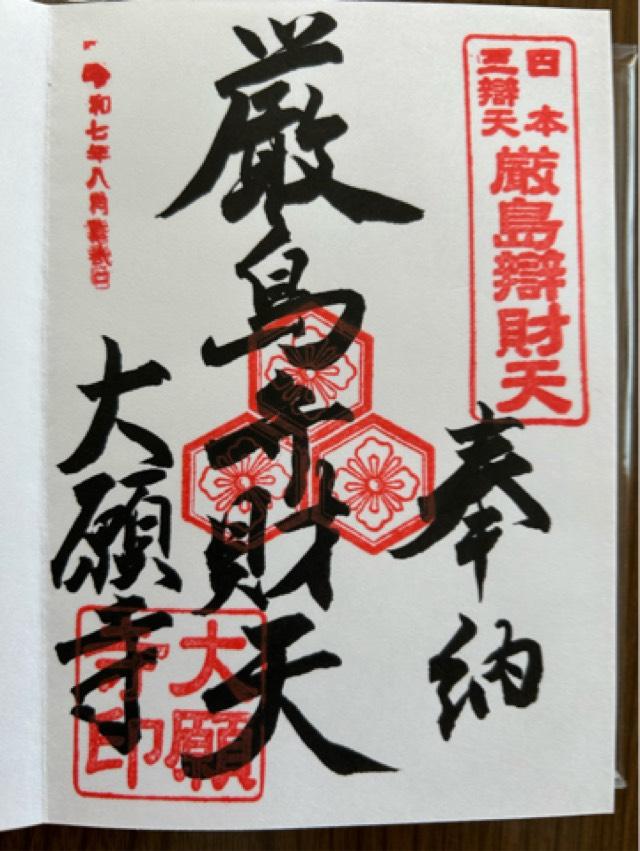 日本
三辯天
厳島辯財天
奉納
厳島弁財天
大願寺
大願
寺印
和七年八月
日